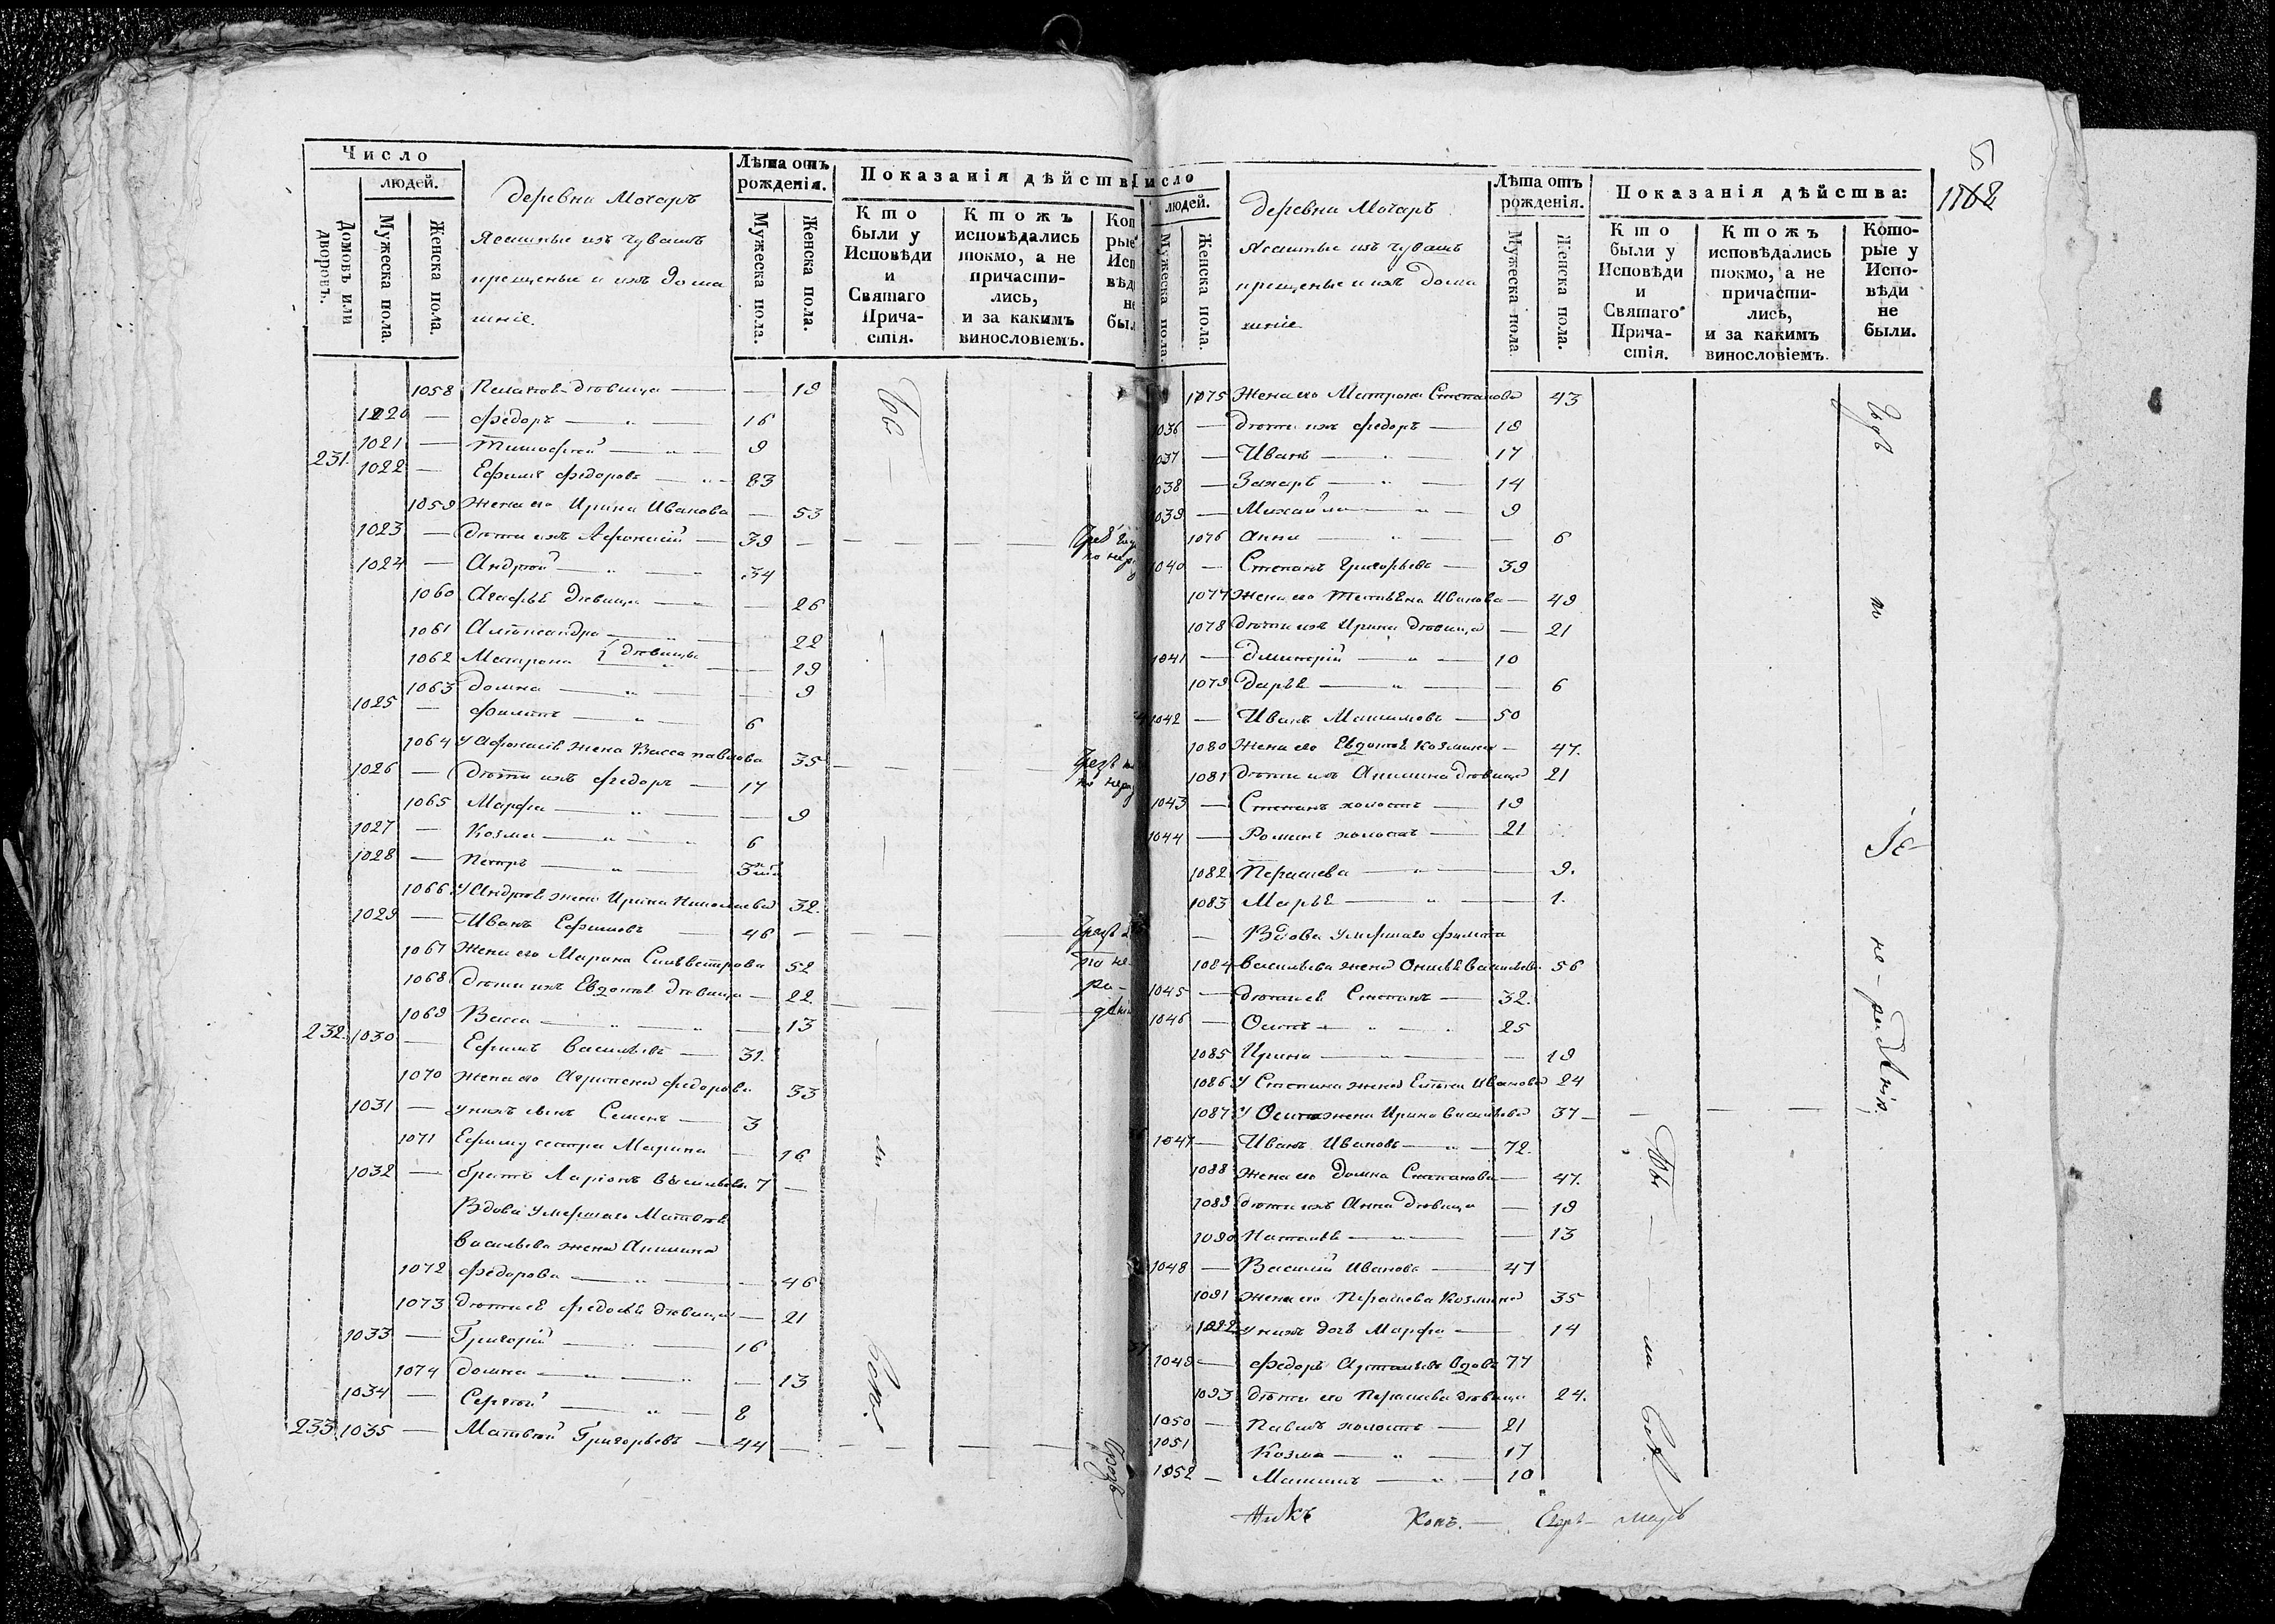 Число
людей.
Домовъ или дворовъ.
Мужеска пола.
Женска пола.
деревни Мочаръ
Ясашные изъ чувашъ
крещеные и ихъ дома
шніе.
Лѣта отъ рожденія.
Мужеска пола.
Женска пола.
Показанія дѣйств
Кто были у Исповѣди и Святаго Причастія.
Ктожъ исповѣдались токмо, а не причастились, и за какимъ винословіемъ.
1058 Пелагея дѣвица — — 19
1020 — Федоръ — " — 16
1021 — Тимофей — " — 9
231. 1022 — Ефимъ Федоровъ — " — 83
1059 Жена его Ирина Иванова — 53
1023 — Дѣти ихъ Афонасий — 39 —
1024 — Андрей — " — 34
1060 Агафья Дѣвица — " — 26
1061 Александра — " — 22
1062 Матрона } дѣвицы — 19
1063 Домна — " — 9
1025 — Филипъ — " — 6
1064 У Афонасія жена Васса павлова 35
1026 — Дѣти ихъ Федоръ — 17
1065 Марфа — " — 9
1027 — Козма — " — 6
1028 — Петръ — " — 3
1066 У Андрея жена Ирина Николаева 32.
1029 — Иванъ Ефимовъ — 46 —
1067 Жена его Марина Сильвестрова 52
1068 Дѣти ихъ Евдокія дѣвица — 22.
1069 Васса — " — " — 13
232. 1030 — Ефимъ Васильевъ — 31.
1070 Жена его Агрипена Федорова 33
1031 — У нихъ сынъ Семенъ — 3
1071 Ефиму сестра Марина — 16
1032 — братъ Ларіонъ Васильевъ 7 —
Вдова умершаго Матвея
Васильева жена Акилина
1072 Федорова — " — 46
1073 Дѣти ея Федосья дѣвица — 21
1033 — Григорій — " — 16
1074 Домна — " — 13
1034 — Сергей — " — 8
233. 1035 — Матвей Григорьевъ — 44 —
5
1162
исло
людей.
Мужеска пола.
Женска пола.
деревни Мочаръ
Ясашные изъ чувашъ
крещеные и ихъ дома
шніе
Лѣта отъ рожденія.
Мужеска пола.
Женска пола.
Показанія дѣйства:
Кто были у Исповѣди и Святаго Причастія.
Ктожъ исповѣдались токмо, а не причастились, и за какимъ винословіемъ.
Которые у Исповѣди не были.
1075 Жена его Матрона Степанова 43
1036 — Дѣти ихъ Федоръ — 19
1037 — Иванъ — " — 17
1038 — Захаръ — " — 14
1039 — Михайла — " — 9
1076 Анна — " — 6
1040 — Степанъ Григорьевъ — 39
1077 Жена его Татьяна Иванова — 49
1078 Дѣти ихъ Ирина дѣвица — 21
1041 — Дмитрій — " — 10
1079 Дарья — " — 6
1042 — Иванъ Максимовъ — 50
1080 Жена его Евдокія Козмина — 47.
1081 Дѣти ихъ Акилина дѣвица 21
1043 — Степанъ холостъ — 19
1044 — Романъ холостъ — 21
1082 Пераскева — " — 9.
1083 Марья — " — 1.
— Вдова умершаго Филипа
1084 Васильева жена Васильева 56
1045 — Дѣти ея Степанъ — 32.
1046 — Осипъ — " — 25
1085 Ирина — " — 19
1086 У Степана жена Елена Иванова 24
1087 У Осипа жена Ирина Васильева 37 —
1047 — Иванъ Ивановъ — " — 72.
1088 Жена его Домна Степанова — 47.
1089 Дѣти ихъ Анна дѣвица — 19
1090 Наталья — " — 13
1048 — Василий Ивановъ — 47
1091 Жена его Пераскева Козмина 35
1092 У нихъ дочь Марфа — 14
1049 — Федоръ вдовъ 77
1093 Дѣти его Пераскева дѣвица 24.
1050 — Павелъ холостъ — 21
1051 Козма — " — 17
1052 — Максимъ — " — 10
по
не - радѣнію